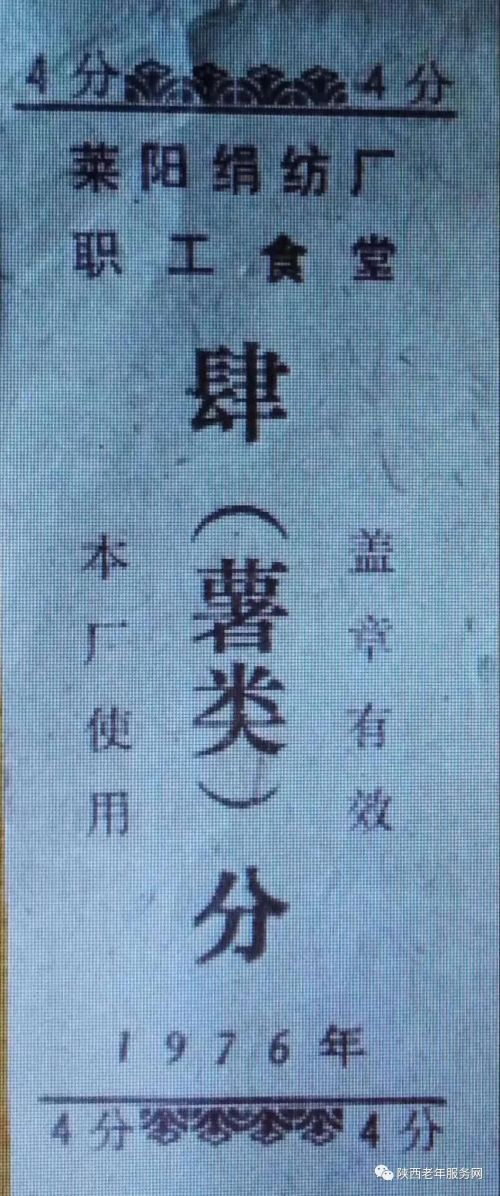 4分 4分
莱阳绢纺厂
职工食堂
肆（薯类）分
本厂使用
盖章有效
1976年
4分 4分
陕西老年服务网